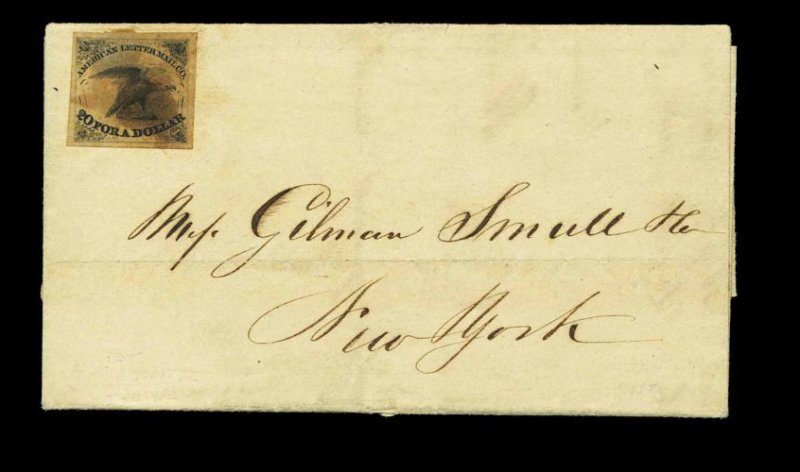 AMERICAN LETTER MAIL CO.
20 FOR A DOLLAR
Mess. Gilman Small
New York